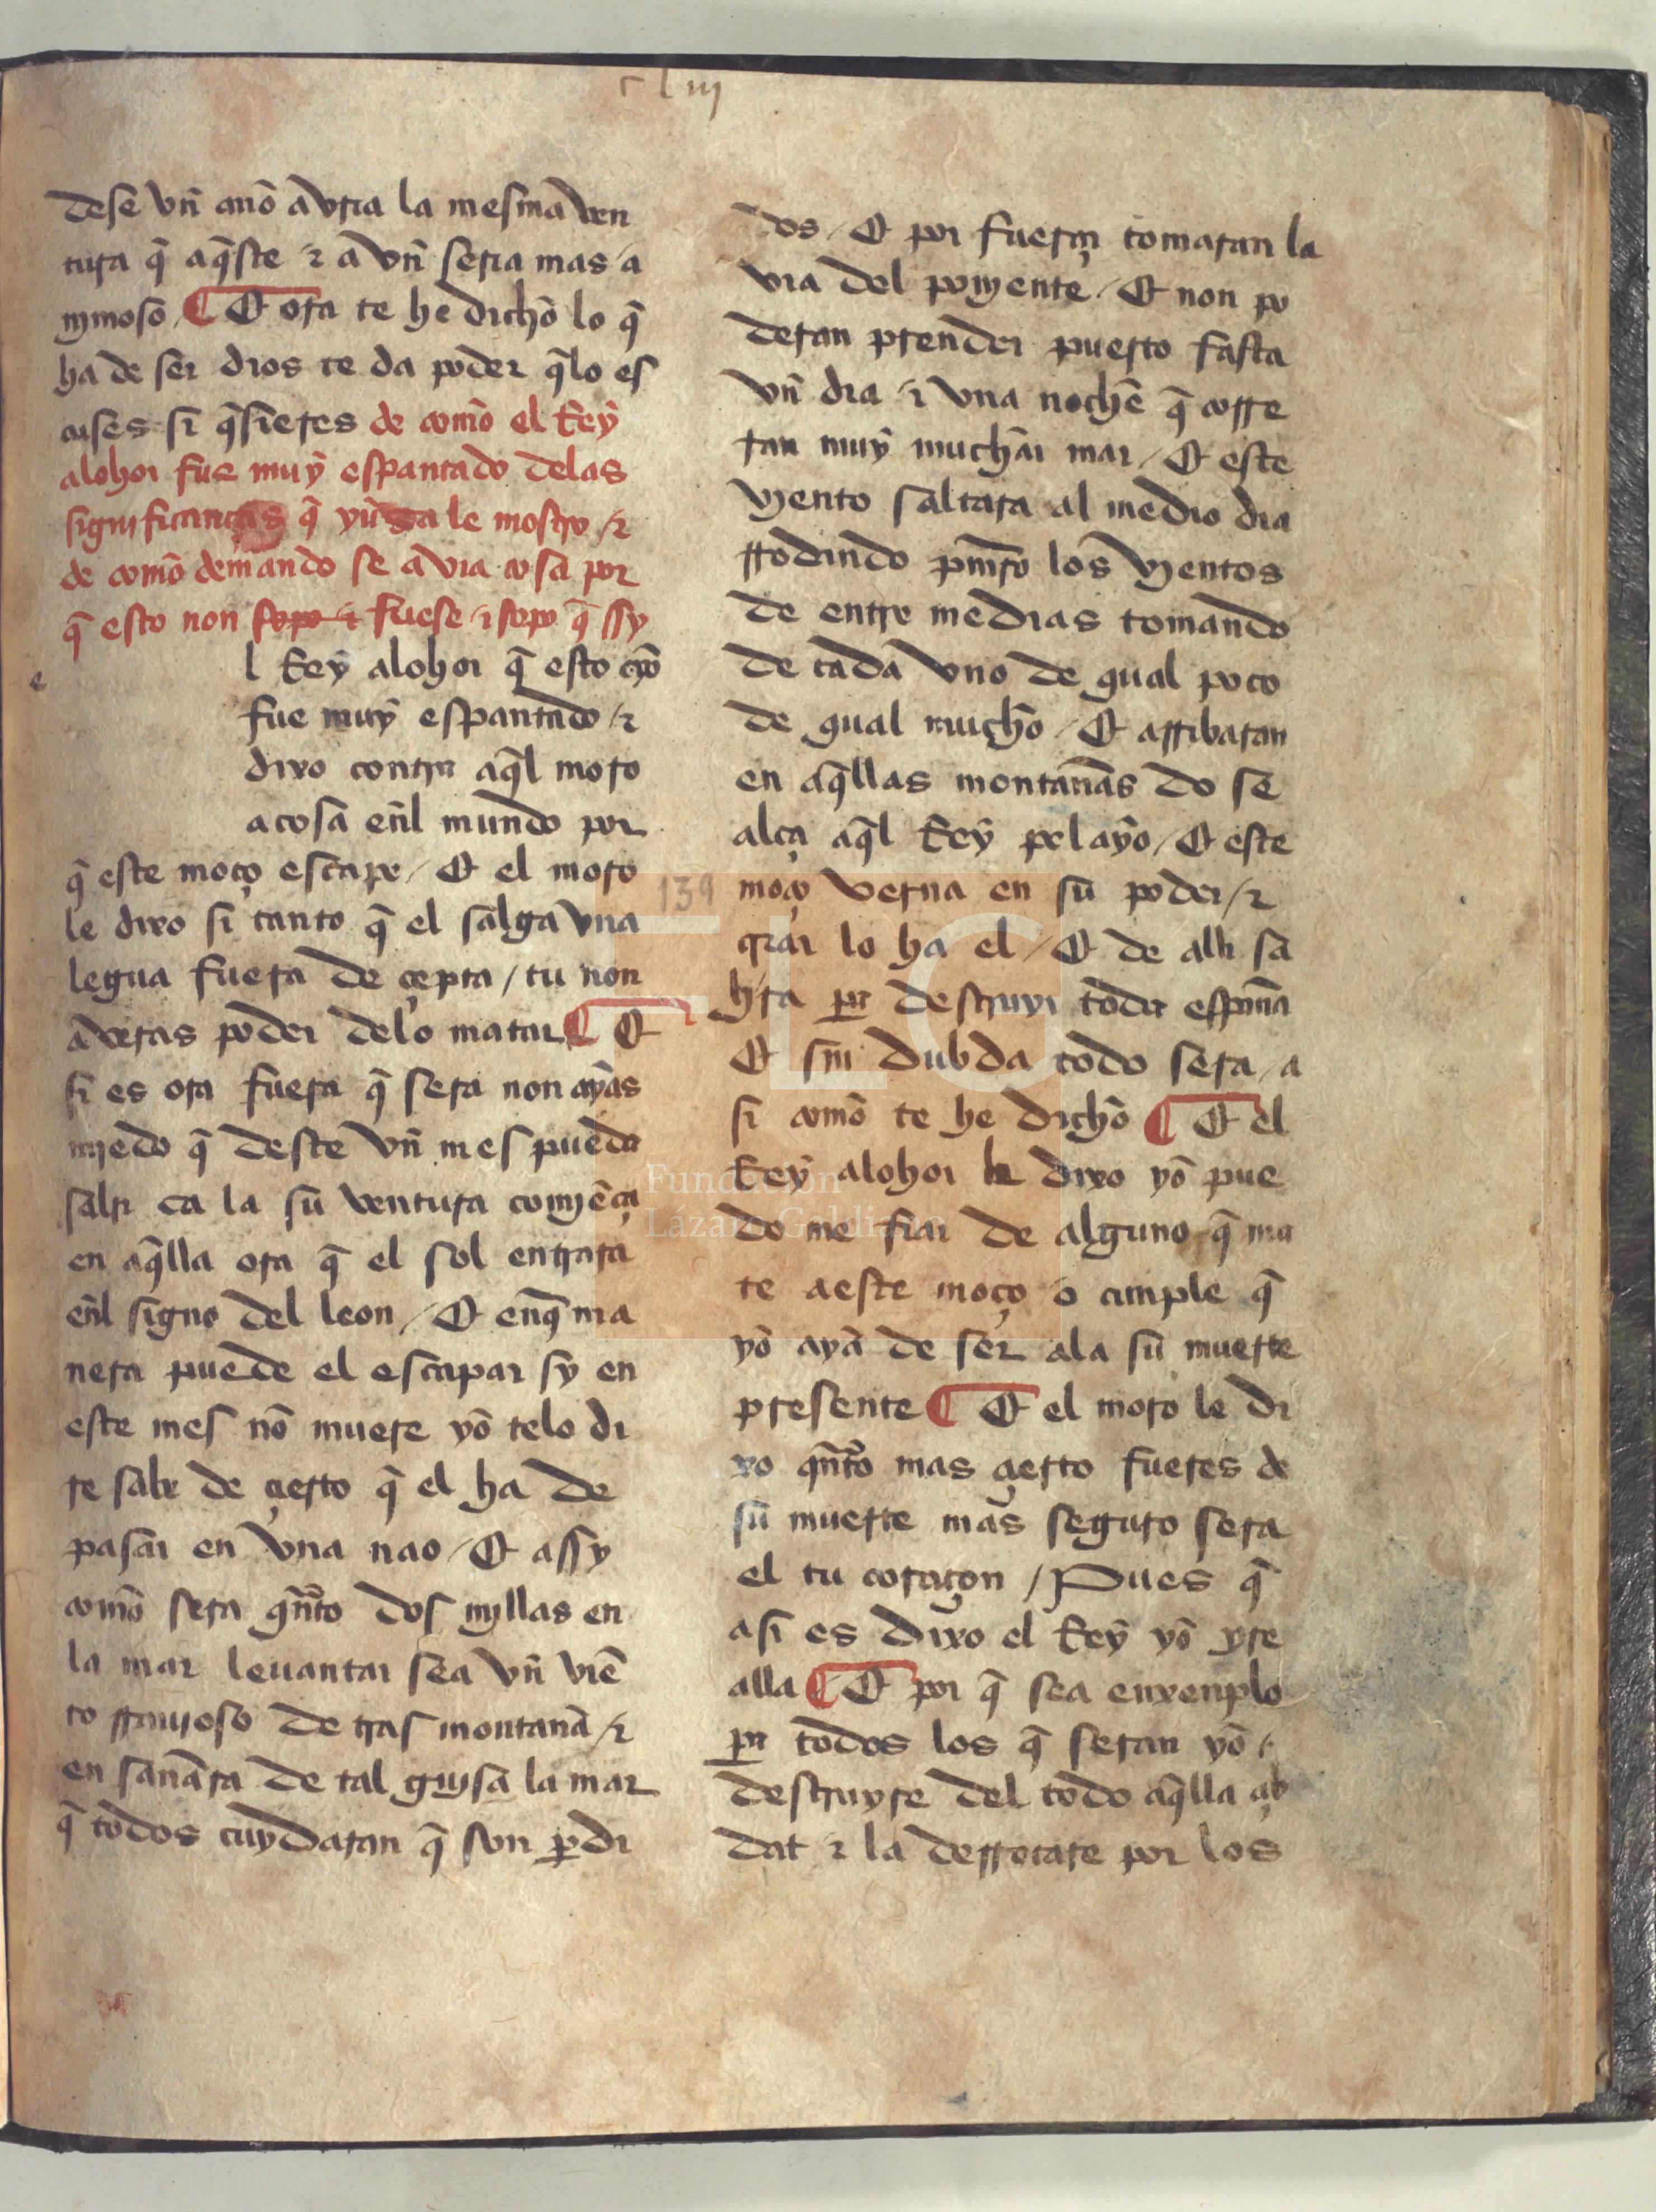 cliij
dese vn̄ anō avria la mesmā ven
tura q̄ aq̄ste ⁊ a vn̄ seria mas a
nimoso / ¶ Et ora te he dicho lo q̄
ha de ser dios te da poder q̄lo es
cuses si q̄sieres de comō el Rey
alohor fue muy espantado delas
significancias q̄ yūsa le mostro ⁊
de comō demandō se avia cosa por
q̄ esto non sopo ⁊ fuese ⁊ sopo q̄ ssy
e
l Rey alohor q̄ esto oyo
fue muy espantado ⁊
dixo contra aq̄l moro
a cosa en̄l mundo por
q̄ este moço escape / Et el moro
le dixo si tanto q̄ el salga vna
legua fuera de çepta / tu non
averas poder delo matar ¶ Et
si es ora fuera q̄ sera non ayas
miedo q̄ deste vn̄ mes pueda
salir ca la su ventura comiēça
en aq̄lla ora q̄ el sol entrara
en̄l signo del leon / Et enq̄ ma
nera puede el escapar sy en
este mes nō muere yō telo di
re sabe de çierto q̄ el ha de
pasar en vna nao / Et assy
comō sera qn̄to dos myllas en
la mar leuantar sea vn̄ viē
to de tras montanā ⁊
en sanāra de tal guysa la mar
q̄ todos cuydaran q̄ son ꝑdi
dos / Et por fuerça tomaran la
via del poniente / Et non po
deran prender puerto fasta
vn̄ dia ⁊ vna nochē q̄ corre
ran muy muchā mar / Et este
viento saltara al medio dia
rrodando los vientos
de entre medias tomando
de cada vno de qual poco
de qual muchō / Et arribaran
en aq̄llas montanās do se
alça aq̄l Rey pelayo / Et este
139
moço verna en su poder / ⁊
criar lo ha el / Et de alli sa
lira pa destruyr toda espanā
Et sin dubda todo sera / a
si comō te he dichō ¶ Et el
Rey alohor le dixo yō pue
do me fiar de alguno q̄ ma
te aeste moço o cunple q̄
yō aya de ser ala su muerte
presente ¶ Et el moro le di
xo qn̄to mas çierto fueres de
su muerte mas seguro sera
el tu coraçon / Pues q̄
asi es dixo el Rey yō yre
alla ¶ Et por q̄ sea enxenplo
pa todos los q̄ seran yō
destruyre del todo aq̄lla çib
dat ⁊ la derrocare por los
FLG
Fundación
Lázaro Galdiano